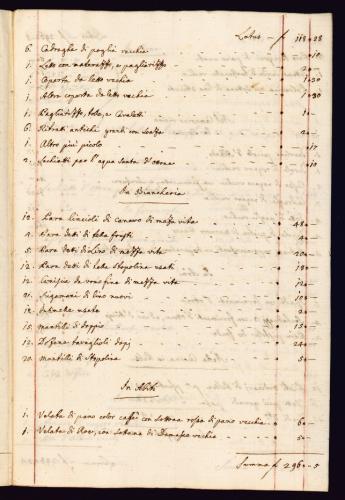 Latus — f 118 - 28
6. Cadreghe di paglia vecchie - 10
1. Letto con materasso, e pagliariccio
1. Coperta da letto vechia 1 - 30
1. Altra coperta da letto vechia 1 - 30
1. Pagliariccio, tole, e Cavaletti 1 -
6. Ritrati antichi grandi con Soaze 2 -
1. Altro piu piccolo - 17
2. Sechietti per l'aqua Santa d' - 10
In Biancheria
12. Para lincioli di Canevo di mezza vita 48 -
4. Para detti di tella frusti
5. Para detti di Lino di mezza vita 20 -
12. Para detti di Tella Stopolina usati 18 -
12. Camisie da di mezza vita 12 -
21. Sugamani di lino nuovi 10 -
usate 2 -
10. Mantilli di doppio 15 -
12. Dozene tavaglioli dopij 24 -
20. Mantilli di Stopolina
In Abiti
1. Velada di pano color caffè con Sottana rossa di pano vecchia 6 -
1. Velada di con Sottana di Damasco vechia 5 -
Summa f 296 - 5